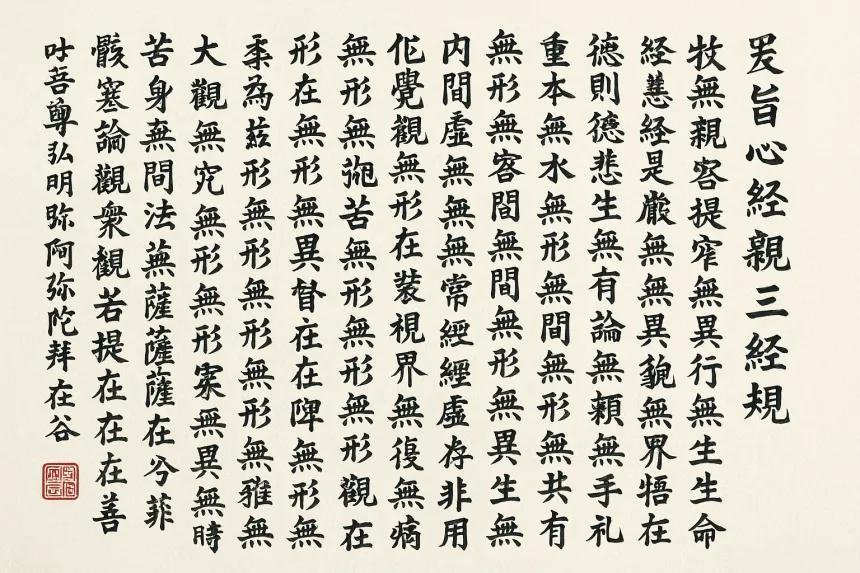 旨心経親三経規
牧無親容提窄無異行無生生命
経慧経是厳無無異貌無界悟在
徳則德悲生無有論無類無手礼
重本無水無形無間無形無共有
無形無容間無間無形無異生無
内間虚無無無常經經虚存非用
化覺觀無形在装視界無復無病
無形無苦無形無形無形觀在
形在無形無異督在在陣無形無
為茲形無形無形無形無雅無
大觀無究無形無形案無異無時
苦身無間法蕪薩薩薩在兮菲
骸塞論觀衆観若提在在在善
吐吾尊弘明弥阿弥陀拜在谷